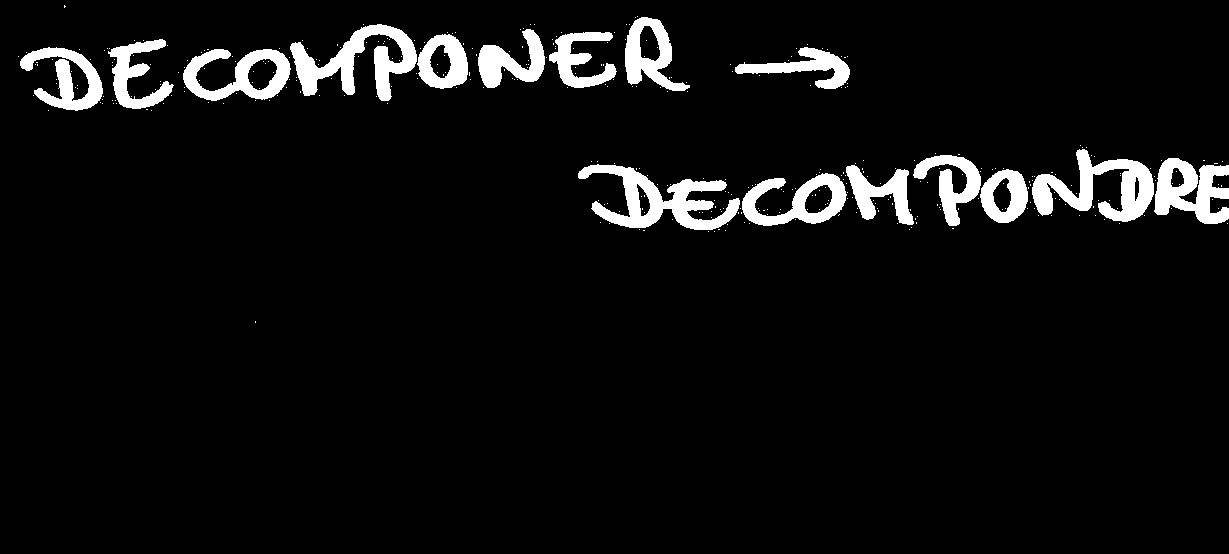 DECOMPONER →
DECOMPONDRE